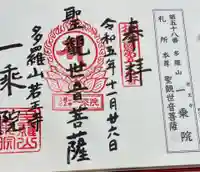 奉拝
令和五年十一月廿六日
聖観世音菩薩
多羅山若王寺
一乗院
第五十八番 多羅山 一乗院
札所本尊 聖観世音菩薩